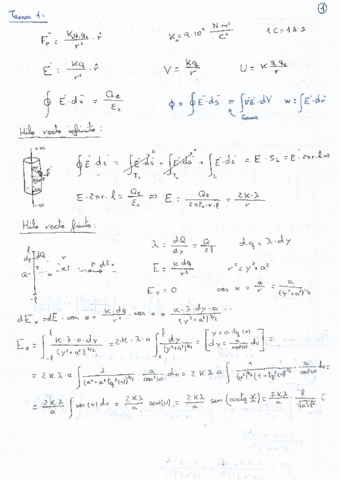 Tema 1:
①
Fe = K q1 q2 / r² · r̂
K = 9·10⁹ N·m² / C²
1C = 1A·S
E = Kq / r² · r̂
V = Kq / r
U = K q1 q2 / r
∮ E·ds = Qe / ε₀
Φ = ∮ E·ds = ∫ ∇E·dV
w = ∫ E·dr
Gauss
Hilo recto infinito:
∮ E·ds = ∫ E·ds + ∫ E·ds + ∫ E·ds = E·SL = E·2πr·l ⇒
E·2πr·l = Qe / ε₀ ⇒ E = Qe / 2πε₀·r·l = 2k·λ / r
Hilo recto finito:
λ = dQ / dy = Q / 2l
dq = λ·dy
E = k dq / r²
r² = y² + a²
Ey = 0
cos α = a / r = a / (y²+a²)^½
dEx = dE·cos α = k·dq / r² · cos α = k·λ·dy·a / (y²+a²)^3/2
Ex = ∫ k·λ·a·dy / (y²+a²)^3/2 = 2·k·λ·a ∫ dy / (y²+a²)^3/2 = [ y = a·tg(u) dy = a / cos²(u) du ] =
= 2kλa ∫ 1 / (a²+a²tg²(u))^3/2 · a / cos²(u) du = 2kλa ∫ 1 / (a²)^3/2 (1+tg²(u))^3/2 · a / cos²(u) du =
= 2kλ / a ∫ cos(u) du = 2kλ / a sen(u) = 2kλ / a sen(arctg y/a) = 2kλ / a · l / √(a²+l²) i